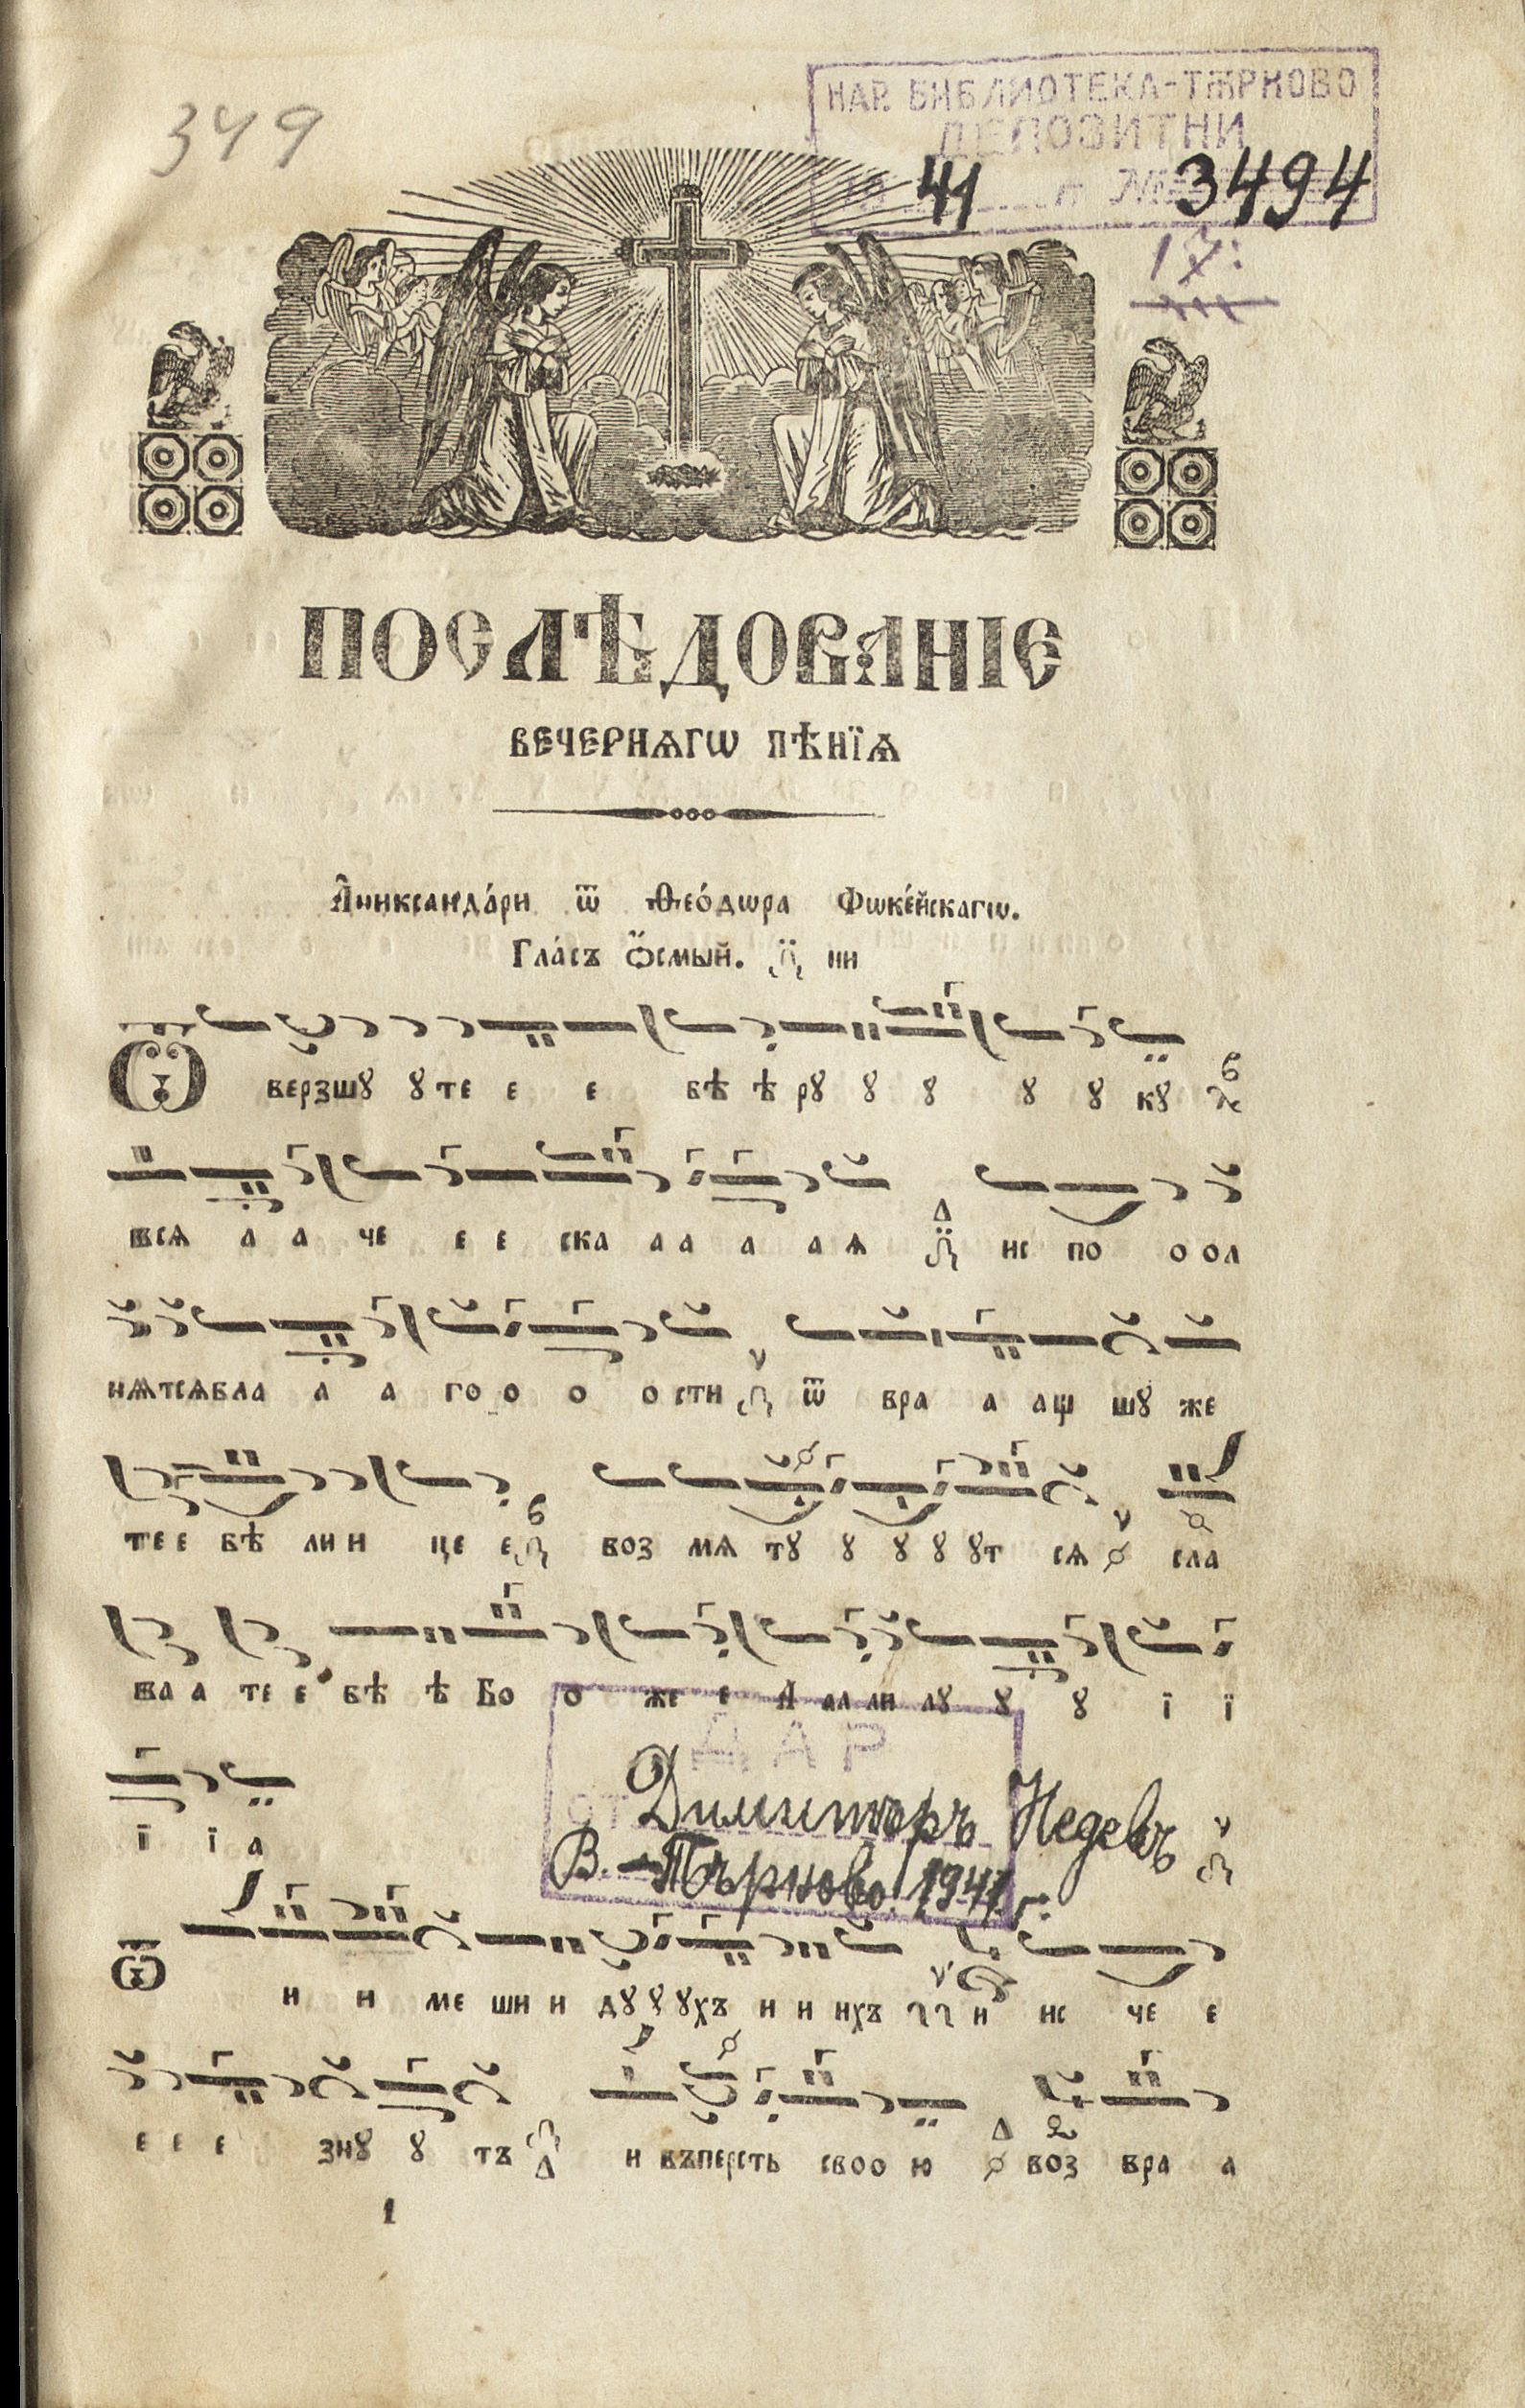 349
НАР. БИБЛИОТЕКА-ТѪРНОВО
ДЕПОЗИТНИ
41 п № 3494
17:
ПОСЛѢДОВАНІЄ
ВЕЧЕРНѦГѠ ПѢНЇѦ
А҆никсанда́ри ѿ Ѳео́дѡра Фѡке́йскагѡ.
Гла́съ Ѻ҆смый. ни
Ѿ верзшꙋ ꙋ те е е вѣ ѣ рꙋ ꙋ ꙋ ꙋ ꙋ кꙋ
всѧ а а че е е ска а а а а ѧ ис по о ол
нѧтсѧбла а а го о о о сти ѿ вра а ащ шꙋ же
те е е вѣ ли и це е воз мѧ тꙋ ꙋ ꙋ ꙋ ꙋт сѧ сла
ва а те е вѣ ѣ Бо о же е А ал ли лꙋ ꙋ ꙋ ї ї
ДАР
ї ї а
от Димитъръ Недевъ
В.-Търново. 1941 г.
Ѿ и и ме ши и дꙋ ꙋ ꙋхъ и и ихъ и ис че е
е е е знꙋ ꙋ тъ и въперсть своо ю воз вра а
1